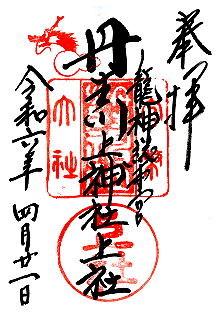 奉拝
龍神総本宮
丹生川上神社上社
令和六年 四月廿一日
大社